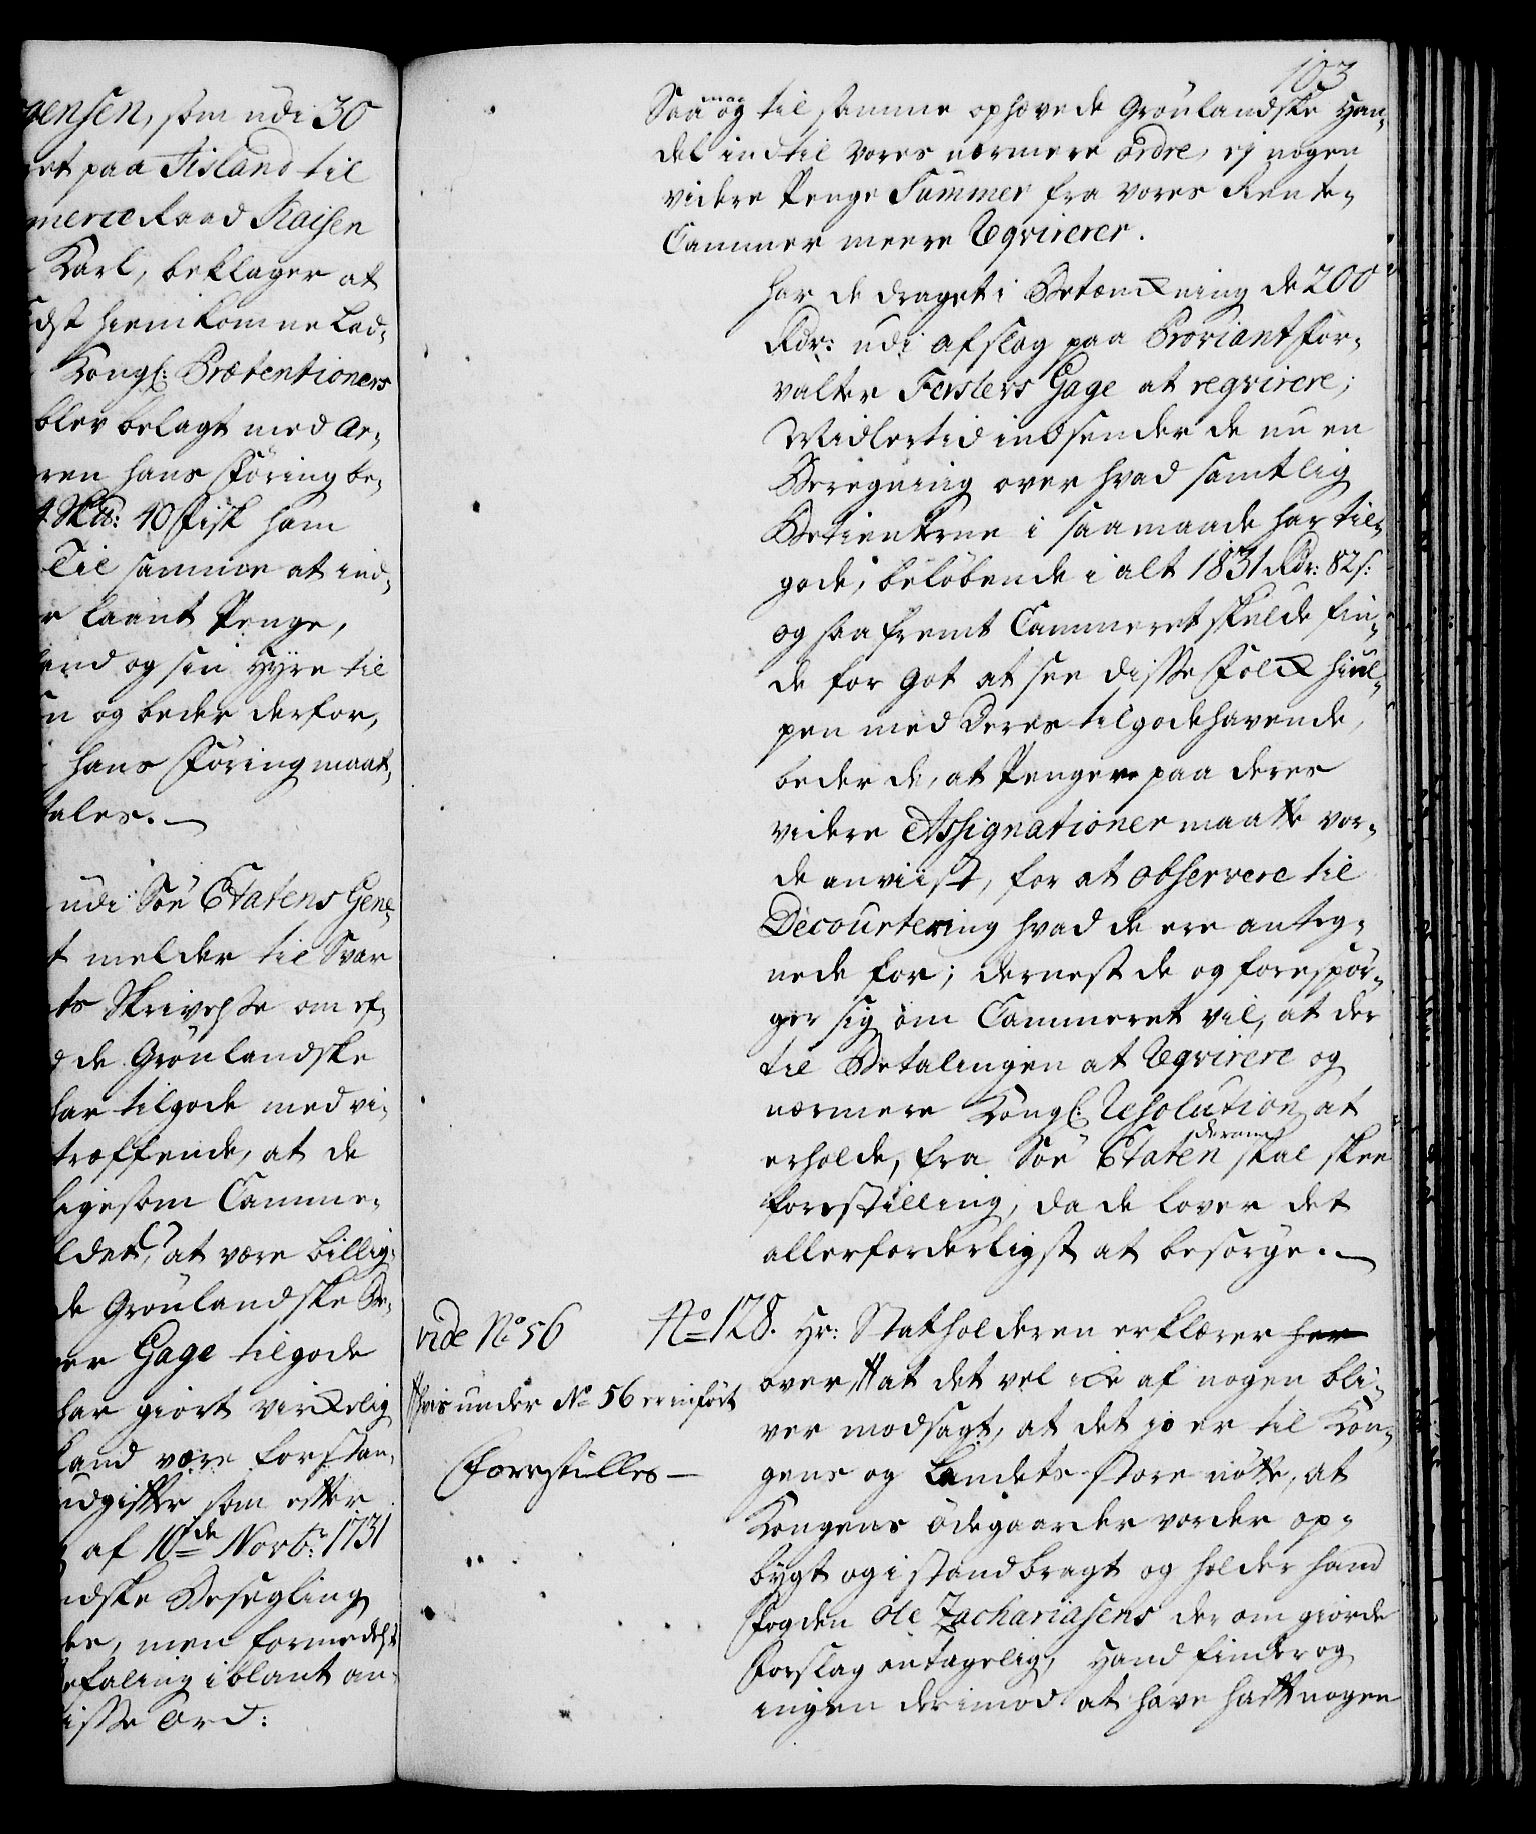 gensen, som udi 30
ret paa Iisland til
merce Raad Raisen
Karl, beklager at
idst hiemkomne Lad,
Kongl: Prætentioners
blev belagt med Ar,
ren hans Föring be,
4 Sk℔: 40 Fisk ham
Til samme at ind,
r laant Penge,
land og sin Hyre til
n og beder derfor,
hans Föring maat,
tales. —
udi Söe Etatens Gene,
t melder til Svar
ts Skrivelse om ef,
d de Grönlandske
har tilgode med vi,
træffende, at de
ligesom Camme,
ldet, at være billig,
de Grönlandske Be,
er Gage tilgode
har giort virkelig
land være forstan,
udgifter som efter
af 10de Novbr: 1731
ndske Besegling
der, men formedelst
efaling iblant an,
disse Ord:
103
Saa mag og til samme ophævede Grönlandske Han,
del indtil Vores nærmere ordre, ej nogen
videre Penge Summer fra Vores Rente,
Cammer meere Reqvirerer.
har de draget i Betænckning de 200
Rdr: udi afslag paa Proviantfor,
valter Fersters Gage at reqvirere;
Midlertid indsender de nu en
Beregning over hvad samtlig
Betienterne i saamaade har til,
gode, belöbende i alt 1831 Rdr: 82 s:
og saafremt Cammeret skulde fin,
de for got at see disse Folck hiul,
pen med Deres tilgodehavende,
beder de, at Pengene paa deres
videre Assignationer maatte vor,
de anviist, for at observere til
Decourtering hvad de ere anteg,
nede for; dernest de og forespör,
ger sig om Cammeret vil, at der
til Betalingen at Reqvirere og
nærmere Kongl: Resolution at
erholde, fra Söe Etaten derom skal skee
forestilling, da de lover det
allerforderligst at besörge. —
vide No 56
No 128. Hr: Statholderen erklærer her
over, # at det vel icke af nogen bli,
# hvis under No 56 er infört
ver modsagt, at det jo er til Kon,
Forrestilles —
gens og Landets store nötte, at
Kongens ödegaarder vorder op,
bygt og i stand bragt og holder hand
Fogden Ole Zachariasens der om giorde
Forslag antagelig, Hand finder og
ingen derimod at have haft nogen